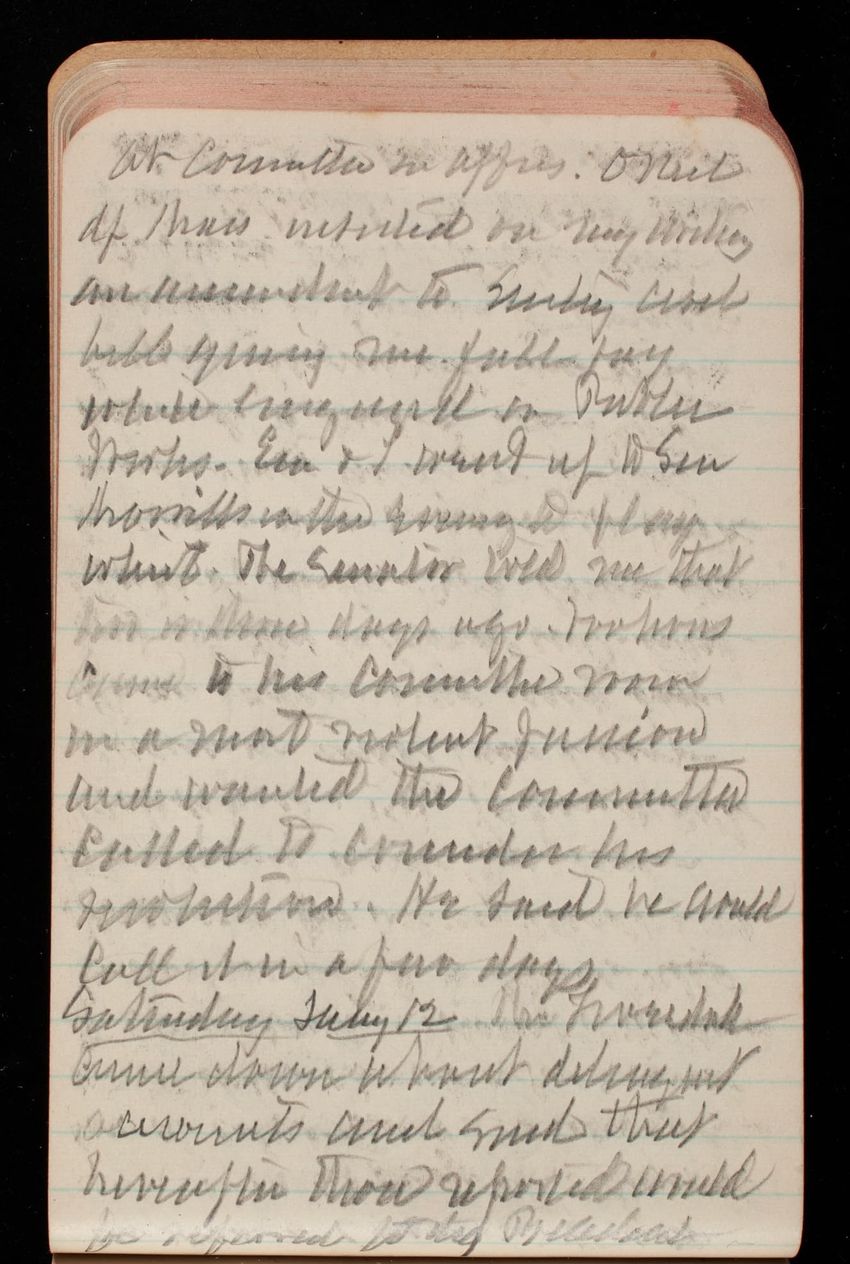 at Committee on appns. O Neil
of Mass insisted on my writing
an amendment to Sundry civil
bill giving me full pay
while engaged on Public
Works. Em & I went up to Sen
Morrills in the evening to play
whist. The Senator told me that
two or three days ago
came to his Committee room
in a most violent passion
and wanted the Committee
called to consider his
resolution. He said he would
call it in a few days
Saturday July 12 The President
came down about delinquent
accounts and said that
hereafter those reported would
be referred to